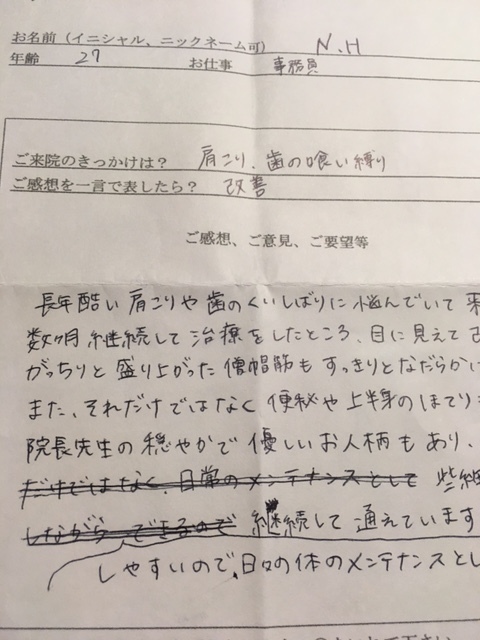 お名前（イニシャル、ニックネーム可） N.H
年齢 27 お仕事 事務員
ご来院のきっかけは？ 肩こり、歯の喰い縛り
ご感想を一言で表したら？ 改善
ご感想、ご意見、ご要望等
長年酷い肩こりや歯のくいしばりに悩んでいて
数ヶ月継続して治療をしたところ、目に見えて
がっちりと盛り上がった僧帽筋もすっきりとなだらかに
また、それだけではなく便秘や上半身のほてり
院長先生の穏やかで優しいお人柄もあり、
だけではなく、日常のメンテナンスとして 些細
しながら できるので 継続して通えています
しやすいので、日々の体のメンテナンスとし